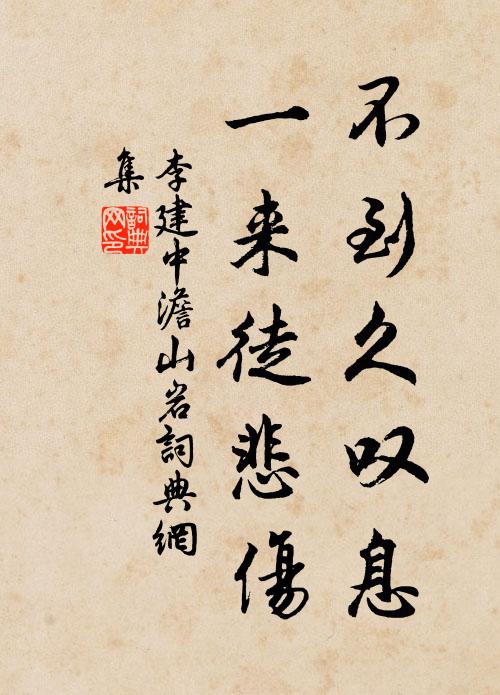 不到久叹息
一来徒悲傷
李建中澹山岩詞典網
集
詞典
网印